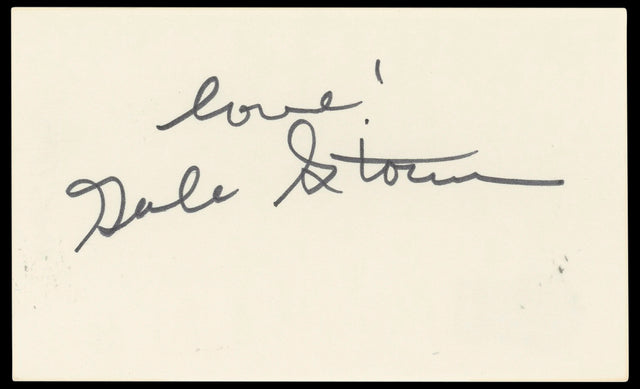 Love!
Gale Storm